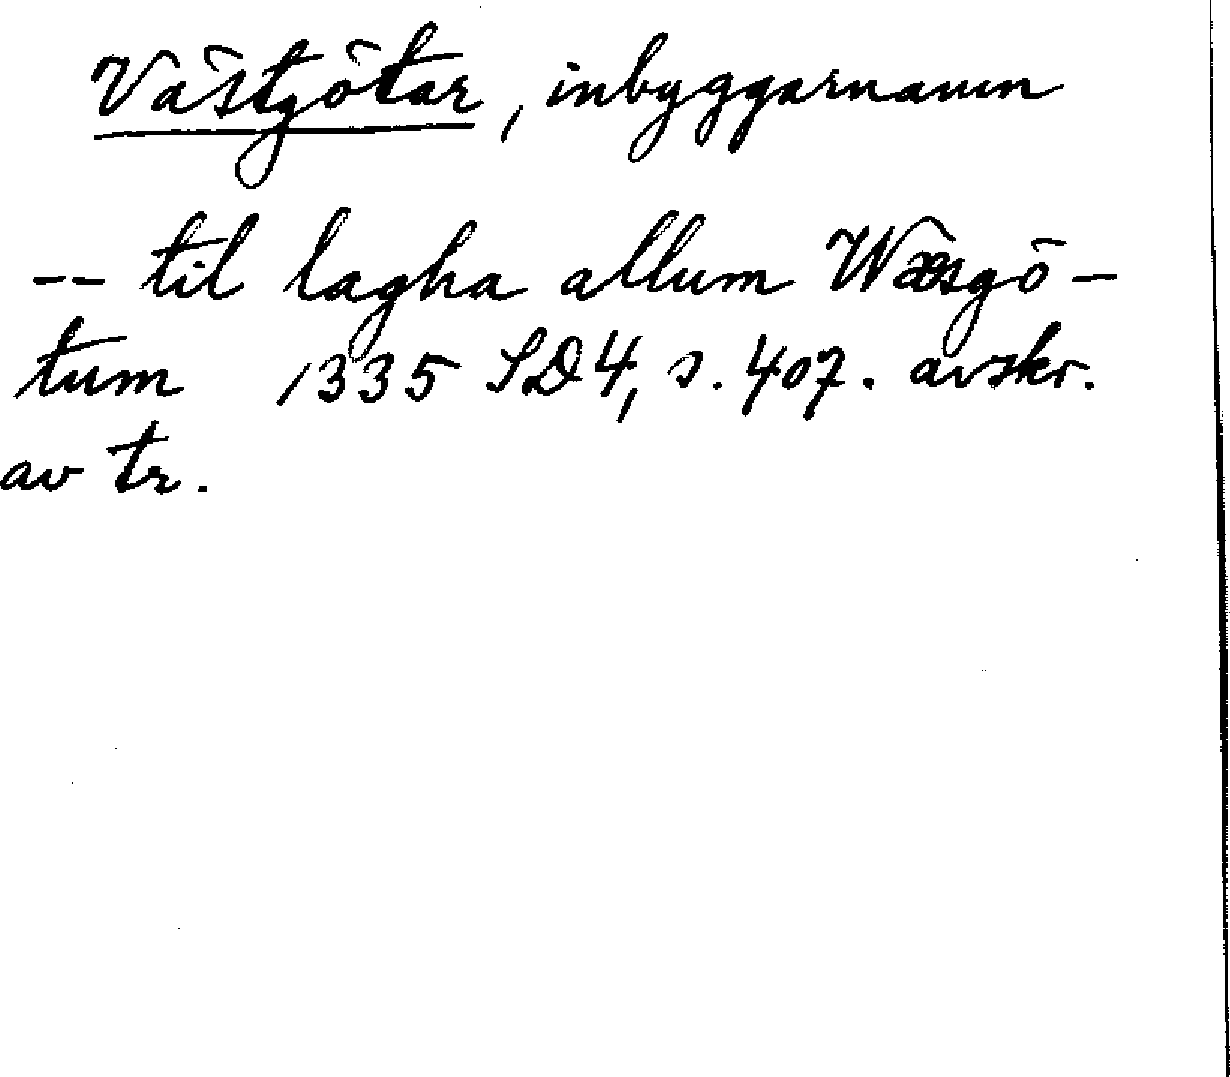 Västgötar, inbyggarnamn
-- til lagha allum Wæsgö-
tum 1335 SD4, s. 407. avskr.
av tr.